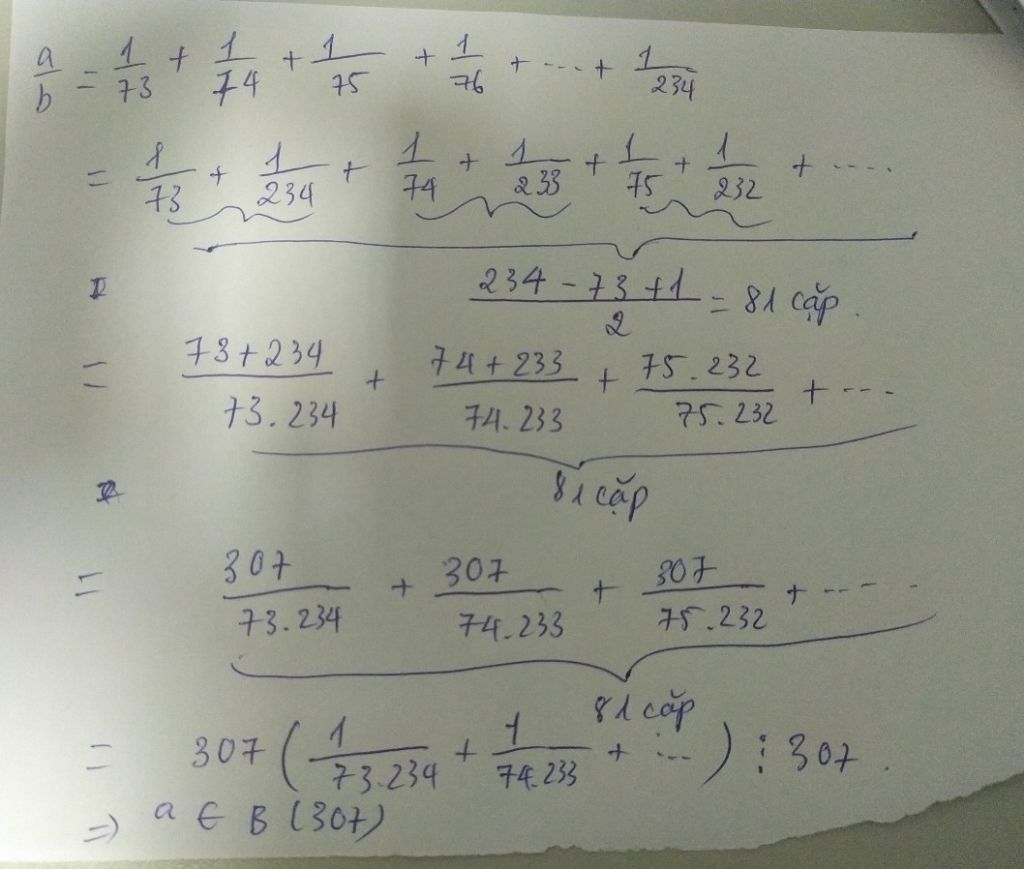 a/b = 1/73 + 1/74 + 1/75 + 1/76 + ... + 1/234
= 1/73 + 1/234 + 1/74 + 1/233 + 1/75 + 1/232 + ....
(234 - 73 + 1)/2 = 81 cặp.
= (73 + 234)/(73.234) + (74 + 233)/(74.233) + (75.232)/(75.232) + ...
81 cặp
= 307/(73.234) + 307/(74.233) + 307/(75.232) + ....
81 cặp
= 307 (1/(73.234) + 1/(74.233) + ...) ⋮ 307.
=> a ∈ B (307)